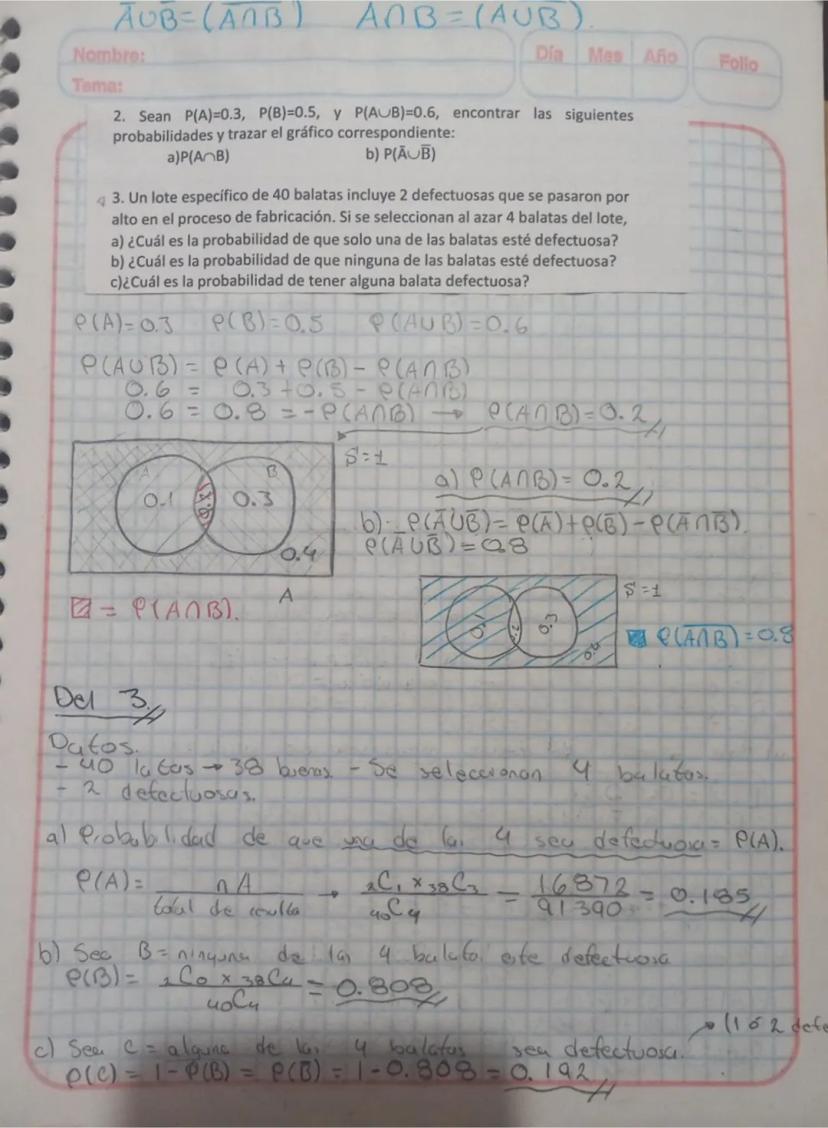 A̅∪B̅=(A̅∩̅B̅) A∩B=(A∪B̅).
Nombre: Día Mes Año Folio
Tema:
2. Sean P(A)=0.3, P(B)=0.5, y P(A∪B)=0.6, encontrar las siguientes
probabilidades y trazar el gráfico correspondiente:
a)P(A∩B) b) P(Ā∪B̅)
3. Un lote específico de 40 balatas incluye 2 defectuosas que se pasaron por
alto en el proceso de fabricación. Si se seleccionan al azar 4 balatas del lote,
a) ¿Cuál es la probabilidad de que solo una de las balatas esté defectuosa?
b) ¿Cuál es la probabilidad de que ninguna de las balatas esté defectuosa?
c)¿Cuál es la probabilidad de tener alguna balata defectuosa?
P(A)=0.3 P(B)=0.5 P(A∪B)=0.6
P(A∪B) = P(A) + P(B) - P(A∩B)
0.6 = 0.3 + 0.5 - P(A∩B)
0.6 = 0.8 = -P(A∩B) → P(A∩B)=0.2
A B S=1
0.1 0.3
0.4
a) P(A∩B) = 0.2
b) P(A̅∪B̅) = P(A̅)+P(B̅) - P(A̅∩B̅).
P(A̅∪B̅)=0.8
A
= P(A∩B).
S=1
P(A̅∩̅B̅)=0.8
Del 3
Datos.
- 40 latas → 38 buenas - Se seleccionan 4 balatas.
- 2 defectuosas.
a) Probabilidad de que una de las 4 sea defectuosa = P(A).
P(A) = nA / total de → ₂C₁ × ₃₈C₃ / ₄₀C₄ = 16872 / 91390 = 0.185
b) Sea B = ninguna de las 4 balata este defectuosa
P(B) = ₂C₀ × ₃₈C₄ / ₄₀C₄ = 0.808
→ (1 ó 2 defe
c) Sea C = alguna de las 4 balatas sea defectuosa.
P(C) = 1 - P(B) = P(B̅) = 1 - 0.808 = 0.192